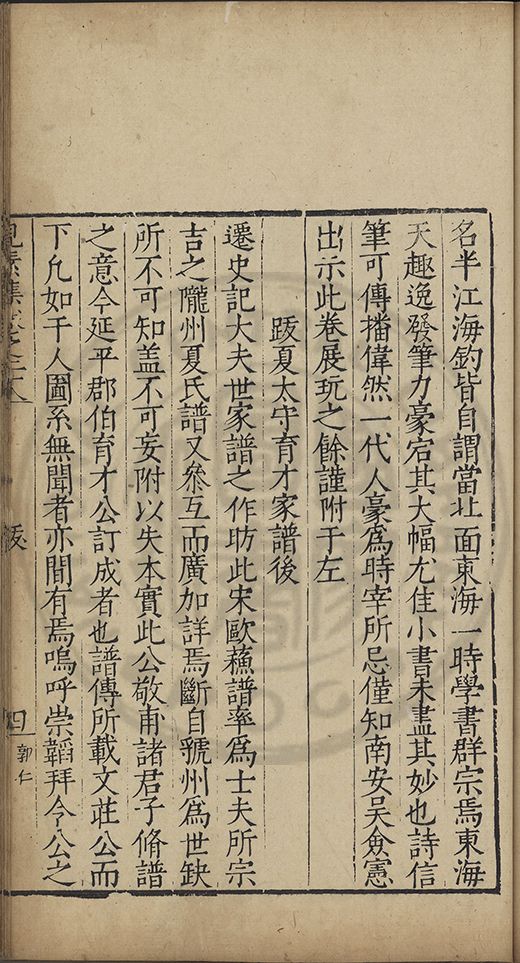 名半江海釣皆自謂當北面東海一時學書群宗焉東海
天趣逸發筆力豪宕其大幅尤佳小書未盡其妙也詩信
筆可傳播偉然一代人豪爲時宰所忌僅知南安吳僉憲
出示此卷展玩之餘謹附于左
跋夏太守育才家譜後
遷史記大夫世家譜之作昉此宋歐蘓譜率爲士夫所宗
吉之隴州夏氏譜又叅互而廣加詳焉斷自虢州爲世缺
所不可知盖不可妄附以失本實此公敬甫諸君子脩譜
之意今延平郡伯育才公訂成者也譜傳所載文莊公而
下凢如干人圖系無聞者亦間有焉嗚呼崇韜拜令公之
見素集卷之二十八
跋
四
郭仁